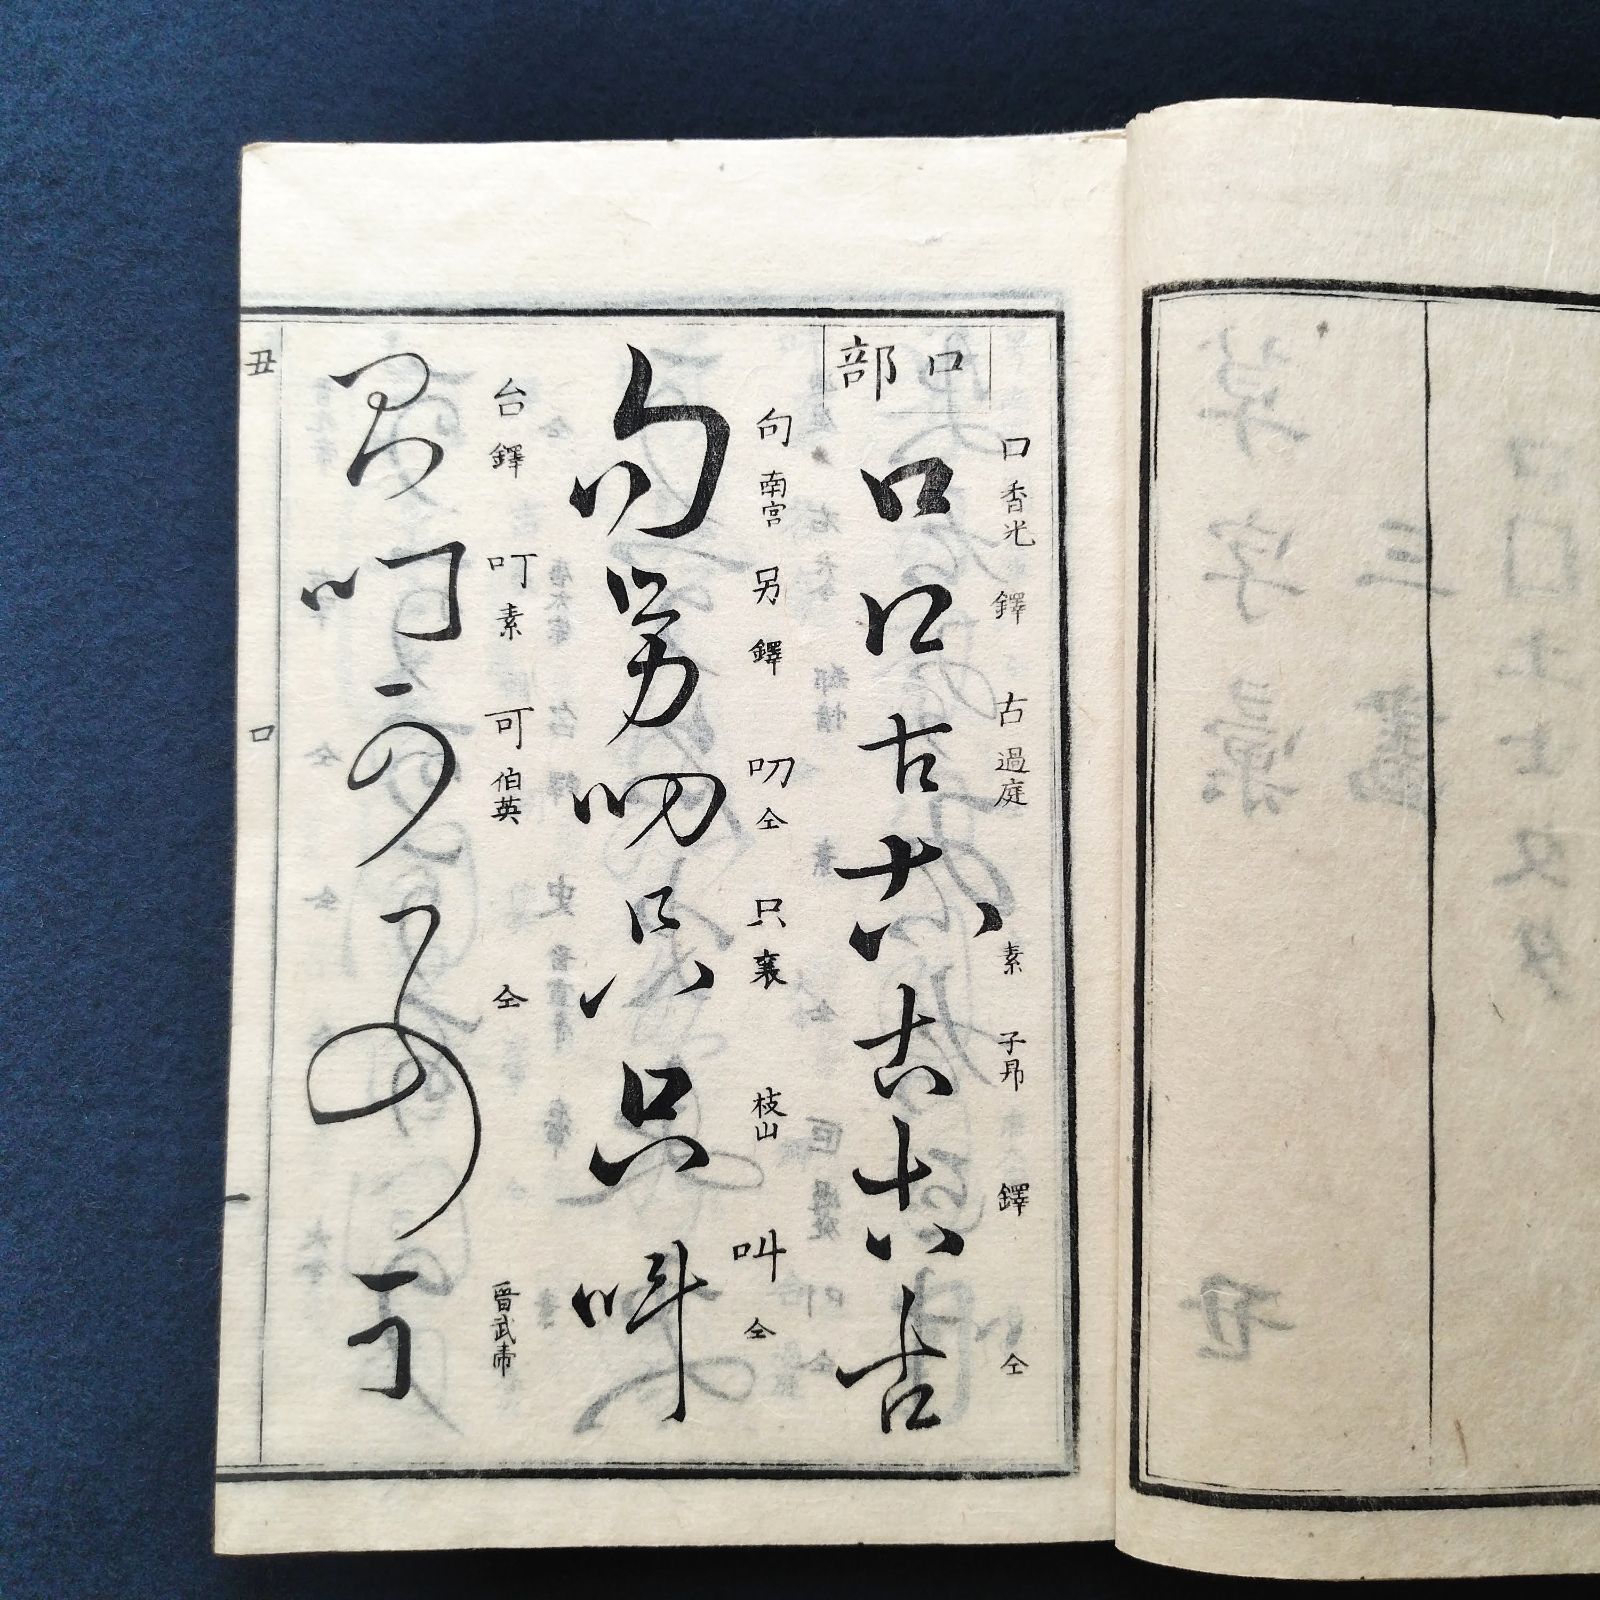 口部
口香光 鐸 古過庭 素 子昂 鐸 仝
口口古古古古古
句南宮 另鐸 叨仝 只襄 枝山 叫仝
句另叨只只叫
台鐸 叮素 可伯英 仝 晋武帝
台叮可可可
丑 口 一